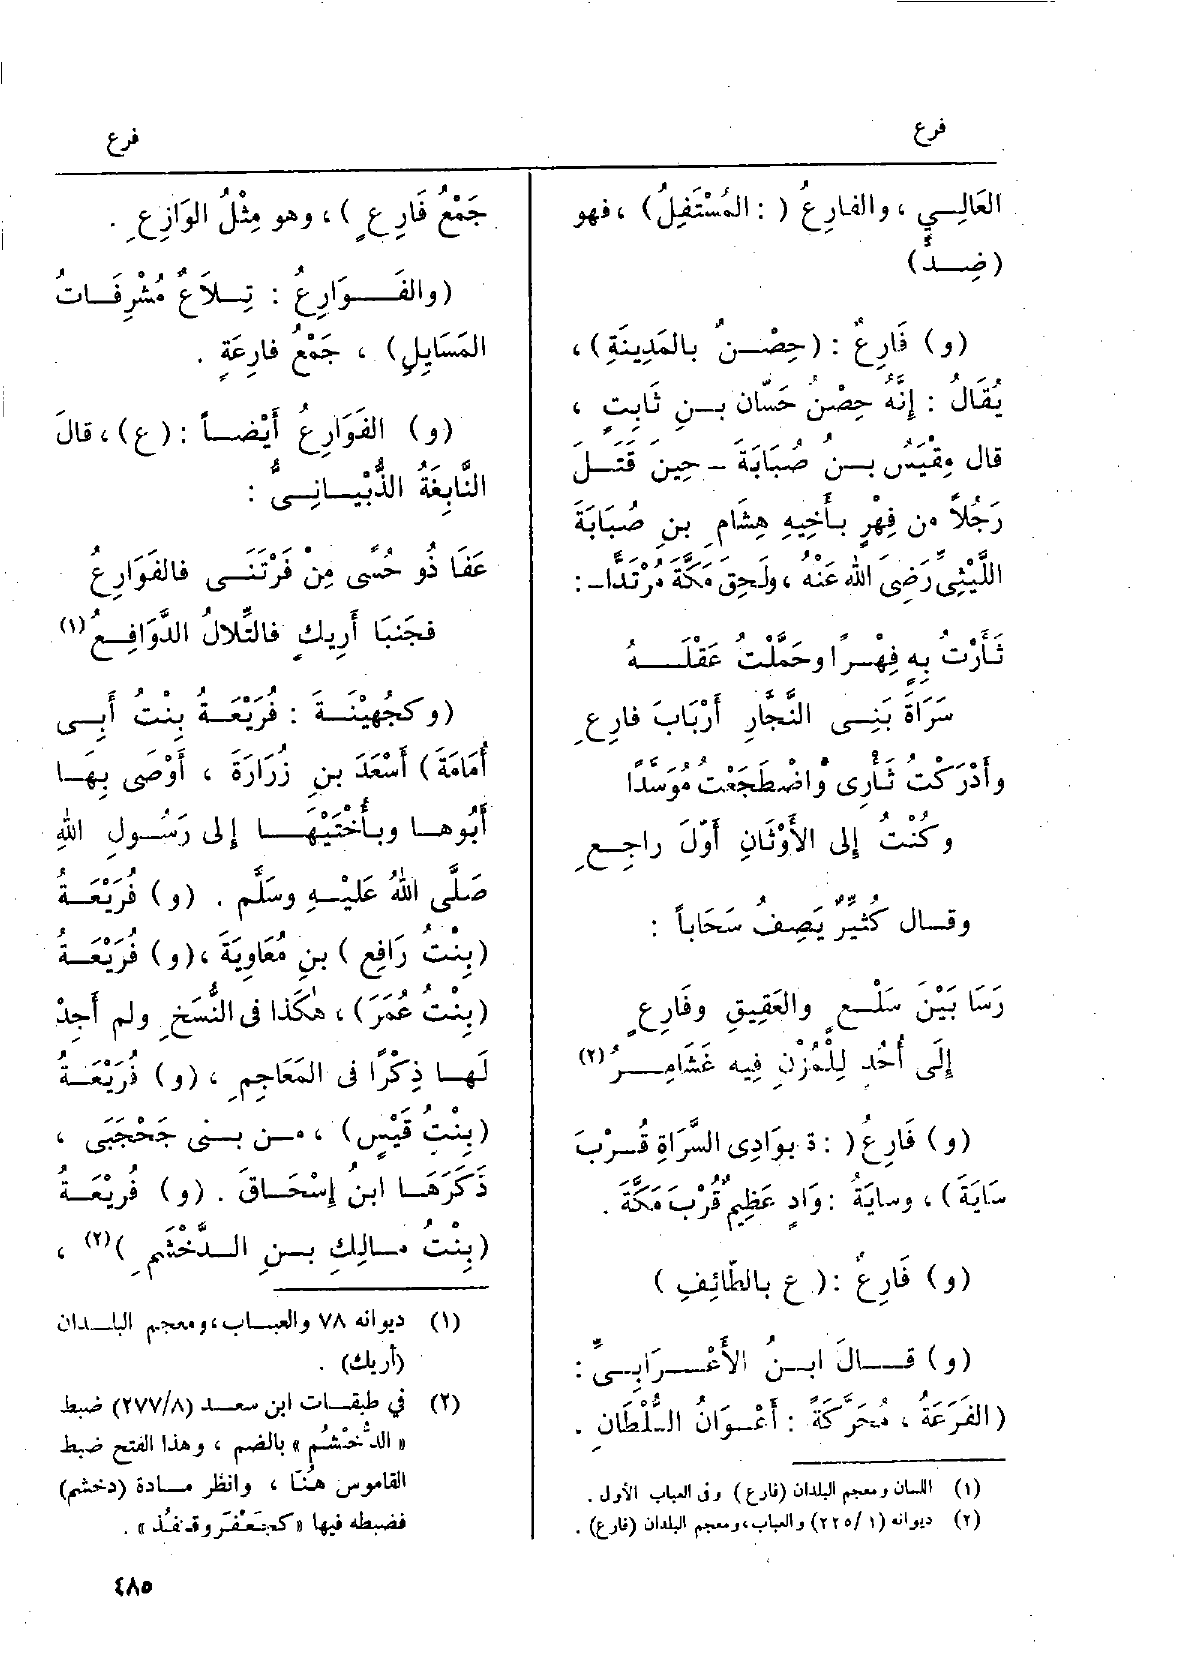 فرع
فرع
العَالِـي ، والفارِعُ ( : المُسْتَفِلُ) ، فهو
(ضِـدٌّ)
(و) فَارِعٌ : (حِصْـنٌ بالمَدِينَةِ) ،
يُقَالُ : إنَّهُ حِصْنُ حَسَّان بـنِ ثَابِتٍ ،
قال مِقْيَسُ بـنُ صُبَابَةَ - حِينَ قَتَـلَ
رَجُلاً من فِهْرٍ بأَخِيهِ هِشَامِ بنِ صُبَابَةَ
اللَّيْثِىِّ رَضِىَ الله عَنْهُ ، ولَحِقَ مَكَّةَ مُرْتَدًّا - :
ثَأَرْتُ بِهِ فِهْـرًا وحَمَّلْتُ عَقْلَـهُ
سَرَاةَ بَنِـى النَّجَّارِ أَرْبَابَ فارِعِ
وأَدْرَكْتُ ثَأْرِى واضْطَجَعْتُ مُوَسَّدًا
وكُنْتُ إلى الأَوْثَانِ أَوّلَ راجِـعِ
وقـال كُثَيِّرٌ يَصِفُ سَحَاباً :
رَسَا بَيْنَ سَلْـعٍ والعَقِيقِ وفَارِعٍ
إلَى أُحُدٍ لِلْمُزْنِ فِيه غَشَامِـرُ (٢)
(و) فَارِعُ ( : ة بوَادِى السَّرَاةِ قُـرْبَ
سَايَةَ) ، وسايَةُ : وَادٍ عَظِيمٌ قُرْبَ مَكَّةَ .
(و) فَارِعٌ : ( ع بالطّائِفِ )
(و) قـالَ ابـنُ الأَعْـرَابِـىِّ :
(الفَرَعَةُ ، مُحَرَّكَةً : أَعْـوَانُ السُّلْطَانِ .
(١) اللسان ومعجم البلدان (فارع) وفى العباب الأول .
(٢) ديوانه (١/ ٢٢٥) والعباب ، ومعجم البلدان (فارع) .
جَمْعُ فَارِعٍ ) ، وهو مِثْلُ الوَازِعِ .
(والفَـوَارِعُ : تِـلاَعٌ مُشْرِفَـاتُ
المَسَايِلِ) ، جَمْعُ فارِعَةٍ .
(و) الفَوَارِعُ أَيْضـاً : (ع) ، قالَ
النَّابِغَةُ الذُّبْيـانِـىُّ :
عَفَا ذُو حُسًى مِنْ فَرْتَنَـى فالفَوَارِعُ
فجَنبَا أَرِيكٍ فالتِّلالُ الدَّوَافِـعُ (١)
(وكجُهَيْنَـةَ : فُرَيْعَـةُ بِنْتُ أَبِـى
أُمَامَةَ) أَسْعَدَ بنِ زُرَارَةَ ، أَوْصَى بِهَـا
أَبُوهـا وبـأُخْتَيْهَـا إلى رَسُـولِ اللهِ
صَلَّى اللهُ عَلَيْـهِ وسَلَّم . (و) فُرَيْعَـةُ
(بِنْتُ رَافِعِ ) بنِ مُعَاوِيَةَ ، (و) فُرَيْعَـةُ
(بِنْتُ عُمَرَ) ، هٰكَذا فى النُّسَخِ ولم أَجِدْ
لَهـا ذِكْرًا فى المَعَاجِمِ ، (و) فُرَيْعَـةُ
(بِنْتِ قَيْسٍ) ، مـن بـنى جَحْجَبَى ،
ذَكَرَهَـا ابنُ إسْحَـاقَ . (و) فُرَيْعَـةُ
(بِنْتُ مـالِكِ بـنِ الـدَّخْشَمِ ) (٢) ،
(١) ديوانه ٧٨ والعبـاب ، ومعجم البلـدان
(أريك) .
(٢) في طبقـات ابن سعـد (٢٧٧/٨) ضبط
« الدُّخْشُم » بالضم ، وهذا الفتح ضبط
القاموس هنا ، وانظر مـادة (دخشم)
فضبطه فيها «كجعْفَر وقـنفُذ» .
٤٨٥